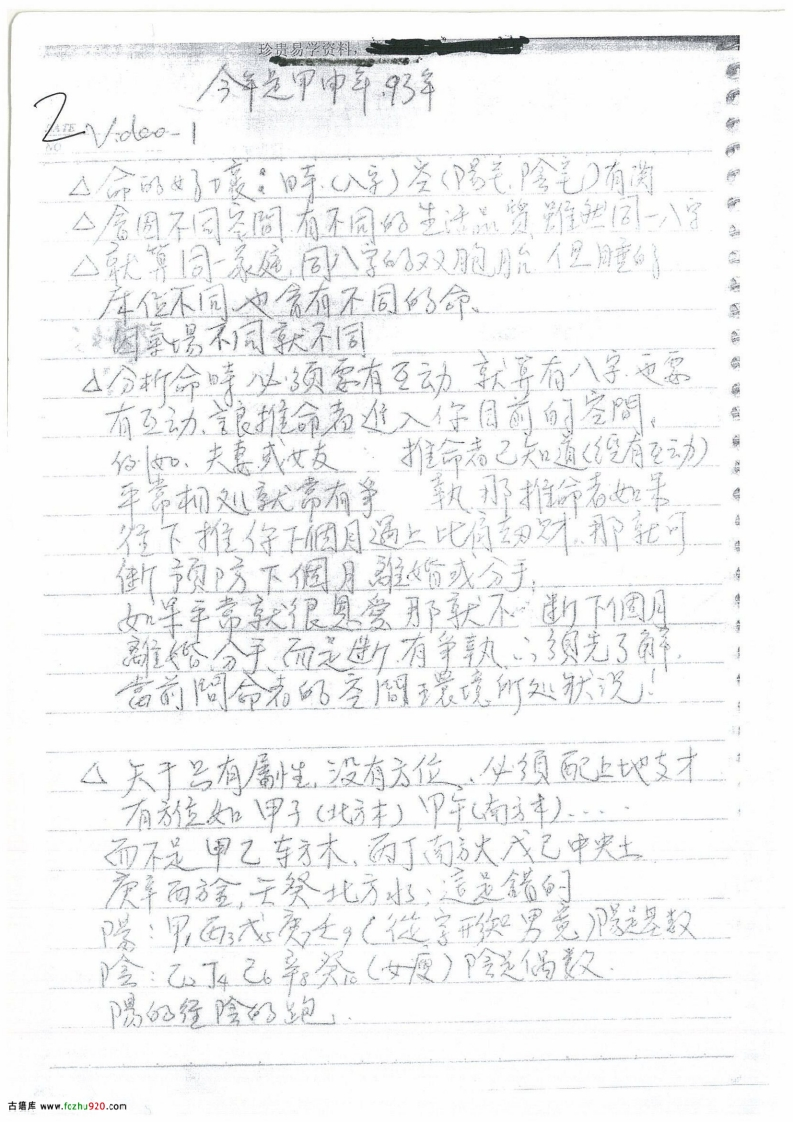 珍贵易学资料,
今年是甲申年,93年
2
DATE
NO
Video-1
△命的好壞:時.(八字)空(陽宅.陰宅)有関
△會因不同空間,有不同的生活品質,雖然同一八字
△就算同一家庭,同八字的双胞胎 但睡的
床位不同,也會有不同的命、
因氣場不同就不同
△分析命時 必須要有互动 就算有八字.也要
有互动、讓推命者進入你目前的空間,
例如.夫妻或女友 推命者已知道(經有互动)
平常相处就常有爭 執 那推命者如果
往下推你下個月遇上比肩劫財.那就可
断预防下個月離婚或分手,
如果平常就很恩爱 那就不 断下個月
離婚.分手,而是断有爭執,必須先了解.
當前問命者的空間環境所处狀況!
△天干只有屬性,没有方位、必須配上地支才
有方位如甲子(北方木)甲午(南方木).....
而不是甲乙东方木、丙丁南方火戊己中央土
庚辛西方金,壬癸北方水;這是錯的
陽:甲1丙3戊5庚7壬9(從字形知男寬)陽是基数
陰:乙2丁4己6辛8癸10(女瘦)陰是偶数.
陽的 陰的跑.
古籍库 www.fczhu920.com